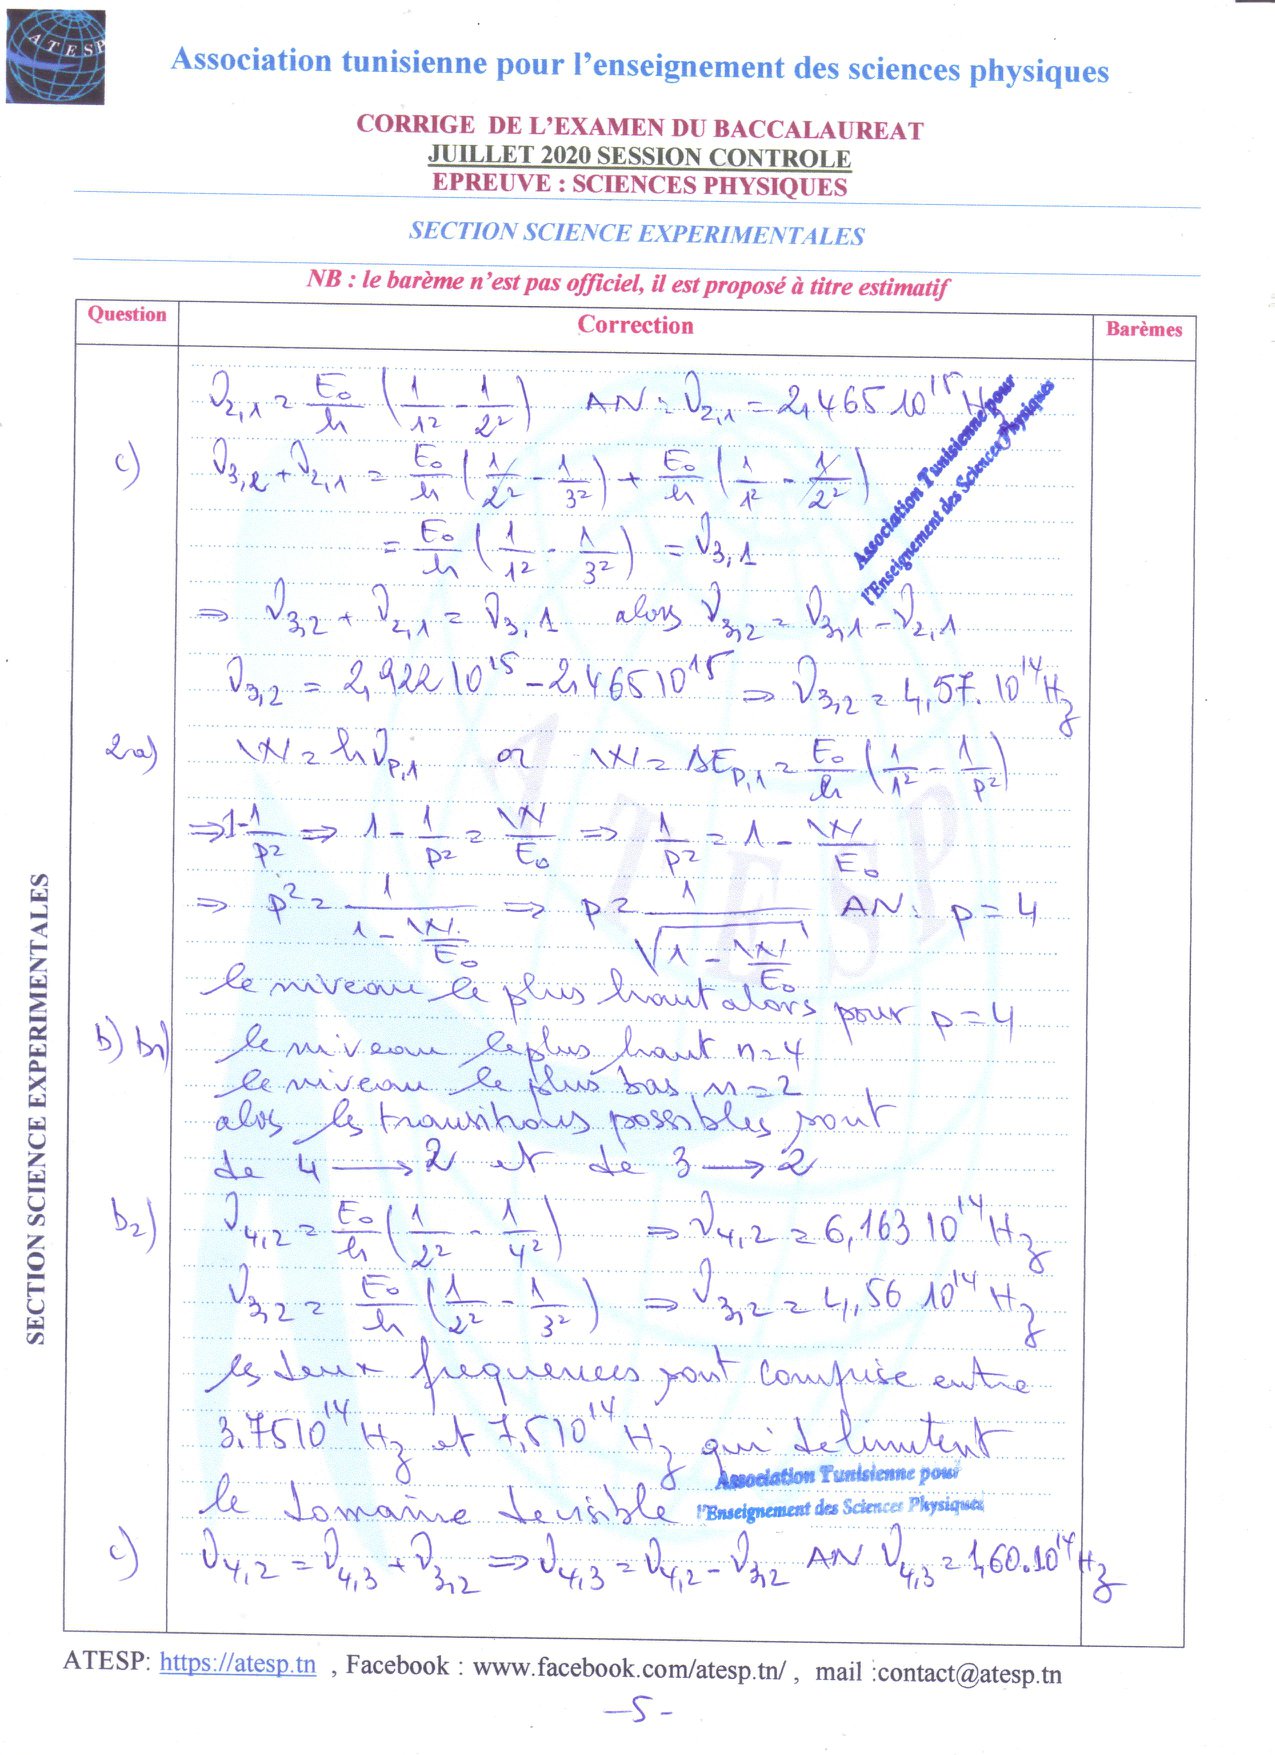 ATESP
Association tunisienne pour l'enseignement des sciences physiques
CORRIGE DE L'EXAMEN DU BACCALAUREAT
JUILLET 2020 SESSION CONTROLE
EPREUVE : SCIENCES PHYSIQUES
SECTION SCIENCE EXPERIMENTALES
NB : le barème n'est pas officiel, il est proposé à titre estimatif
Question Correction Barèmes
ν2,1 = E0/h (1/1² - 1/2²) AN: ν2,1 = 2,465 10^15 Hz
c) ν3,2 + ν2,1 = E0/h (1/2² - 1/3²) + E0/h (1/1² - 1/2²)
= E0/h (1/1² - 1/3²) = ν3,1
Association Tunisienne pour
l'Enseignement des Sciences Physiques
⇒ ν3,2 + ν2,1 = ν3,1 alors ν3,2 = ν3,1 - ν2,1
ν3,2 = 2,922 10^15 - 2,465 10^15 ⇒ ν3,2 = 4,57. 10^14 Hz
2a) W = hνp,1 or W = ΔEp,1 = E0/h (1/1² - 1/p²)
⇒ 1-1/p² ⇒ 1 - 1/p² = W/E0 ⇒ 1/p² = 1 - W/E0
⇒ p² = 1/(1 - W/E0) ⇒ p = 1/√(1 - W/E0) AN: p = 4
le niveau le plus haut alors pour p = 4
b) b1) le niveau le plus haut n = 4
le niveau le plus bas n = 2
alors les transitions possibles sont
de 4 → 2 et de 3 → 2
b2) ν4,2 = E0/h (1/2² - 1/4²) ⇒ ν4,2 = 6,163 10^14 Hz
ν3,2 = E0/h (1/2² - 1/3²) ⇒ ν3,2 = 4,56 10^14 Hz
les deux frequences sont comprise entre
3.75 10^14 Hz et 7,5 10^14 Hz qui delimitent
le domaine de visible
Association Tunisienne pour
l'Enseignement des Sciences Physiques
c) ν4,2 = ν4,3 + ν3,2 ⇒ ν4,3 = ν4,2 - ν3,2 AN ν4,3 = 1,60.10^14 Hz
SECTION SCIENCE EXPERIMENTALES
ATESP: https://atesp.tn , Facebook : www.facebook.com/atesp.tn/ , mail :contact@atesp.tn
-5-